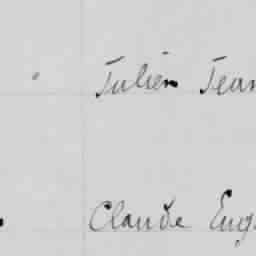 Julien Jean
Claude Eug